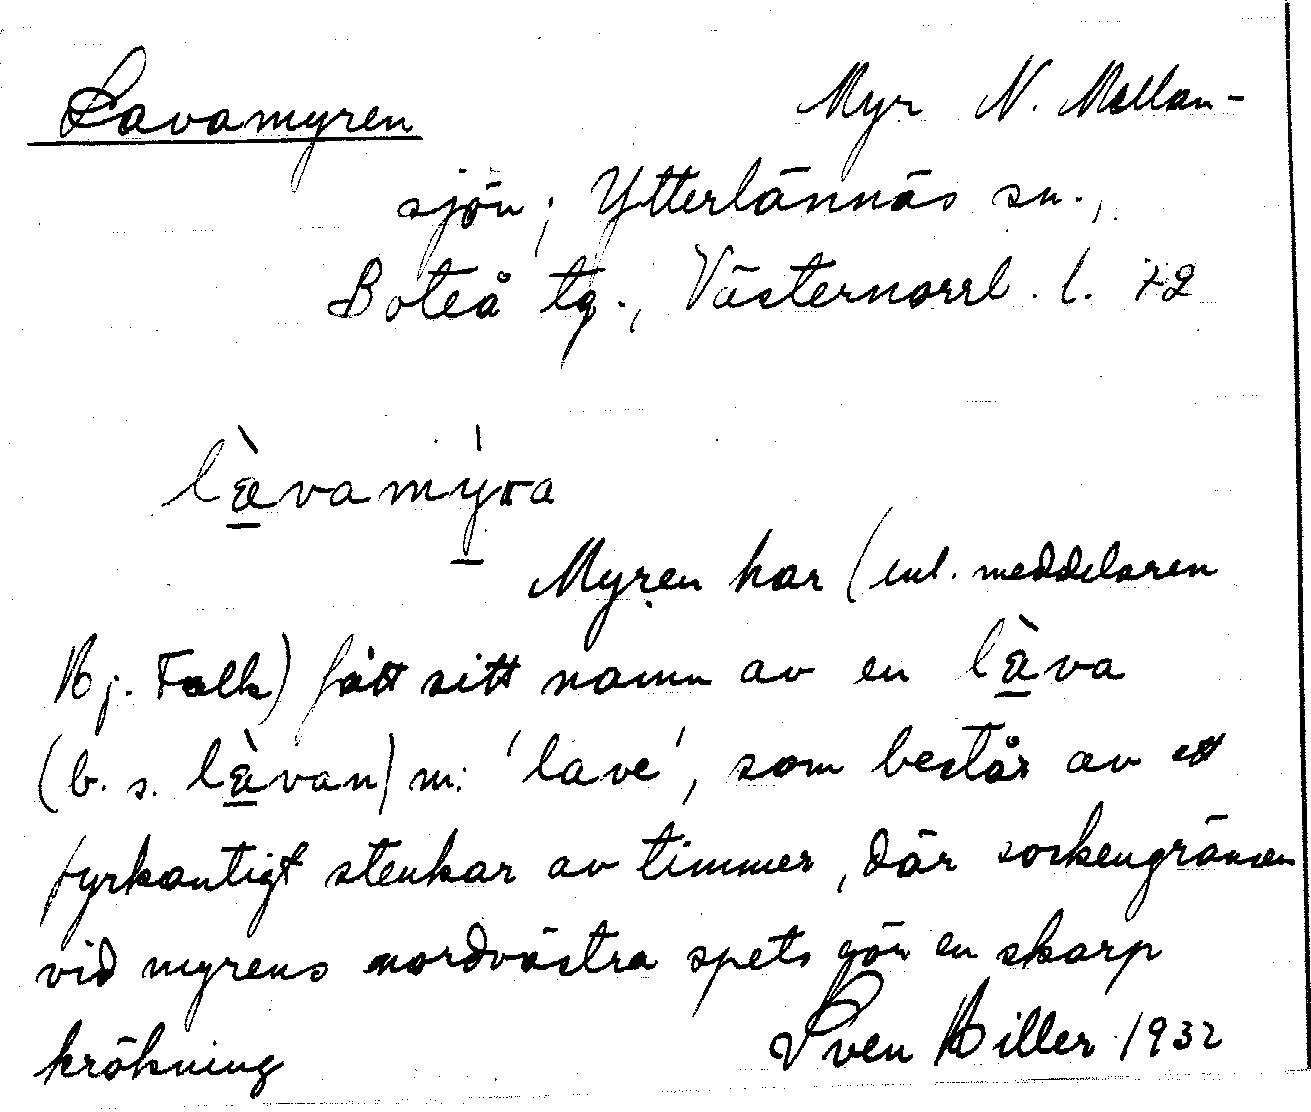 Lavamyren Myr N. Mellan-
sjön; Ytterlännäs sn.,
Boteå tg., Västernorrl. l. 72
làvamýra
Myren har (enl. meddelaren
Bj. Falk) fått sitt namn av en làva
(b. s. làvan) m. 'lave', som består av ett
fyrkantigt stenkar av timmer, där sockengränsen
vid myrens nordvästra spets gör en skarp
krökning Sven Hiller 1932